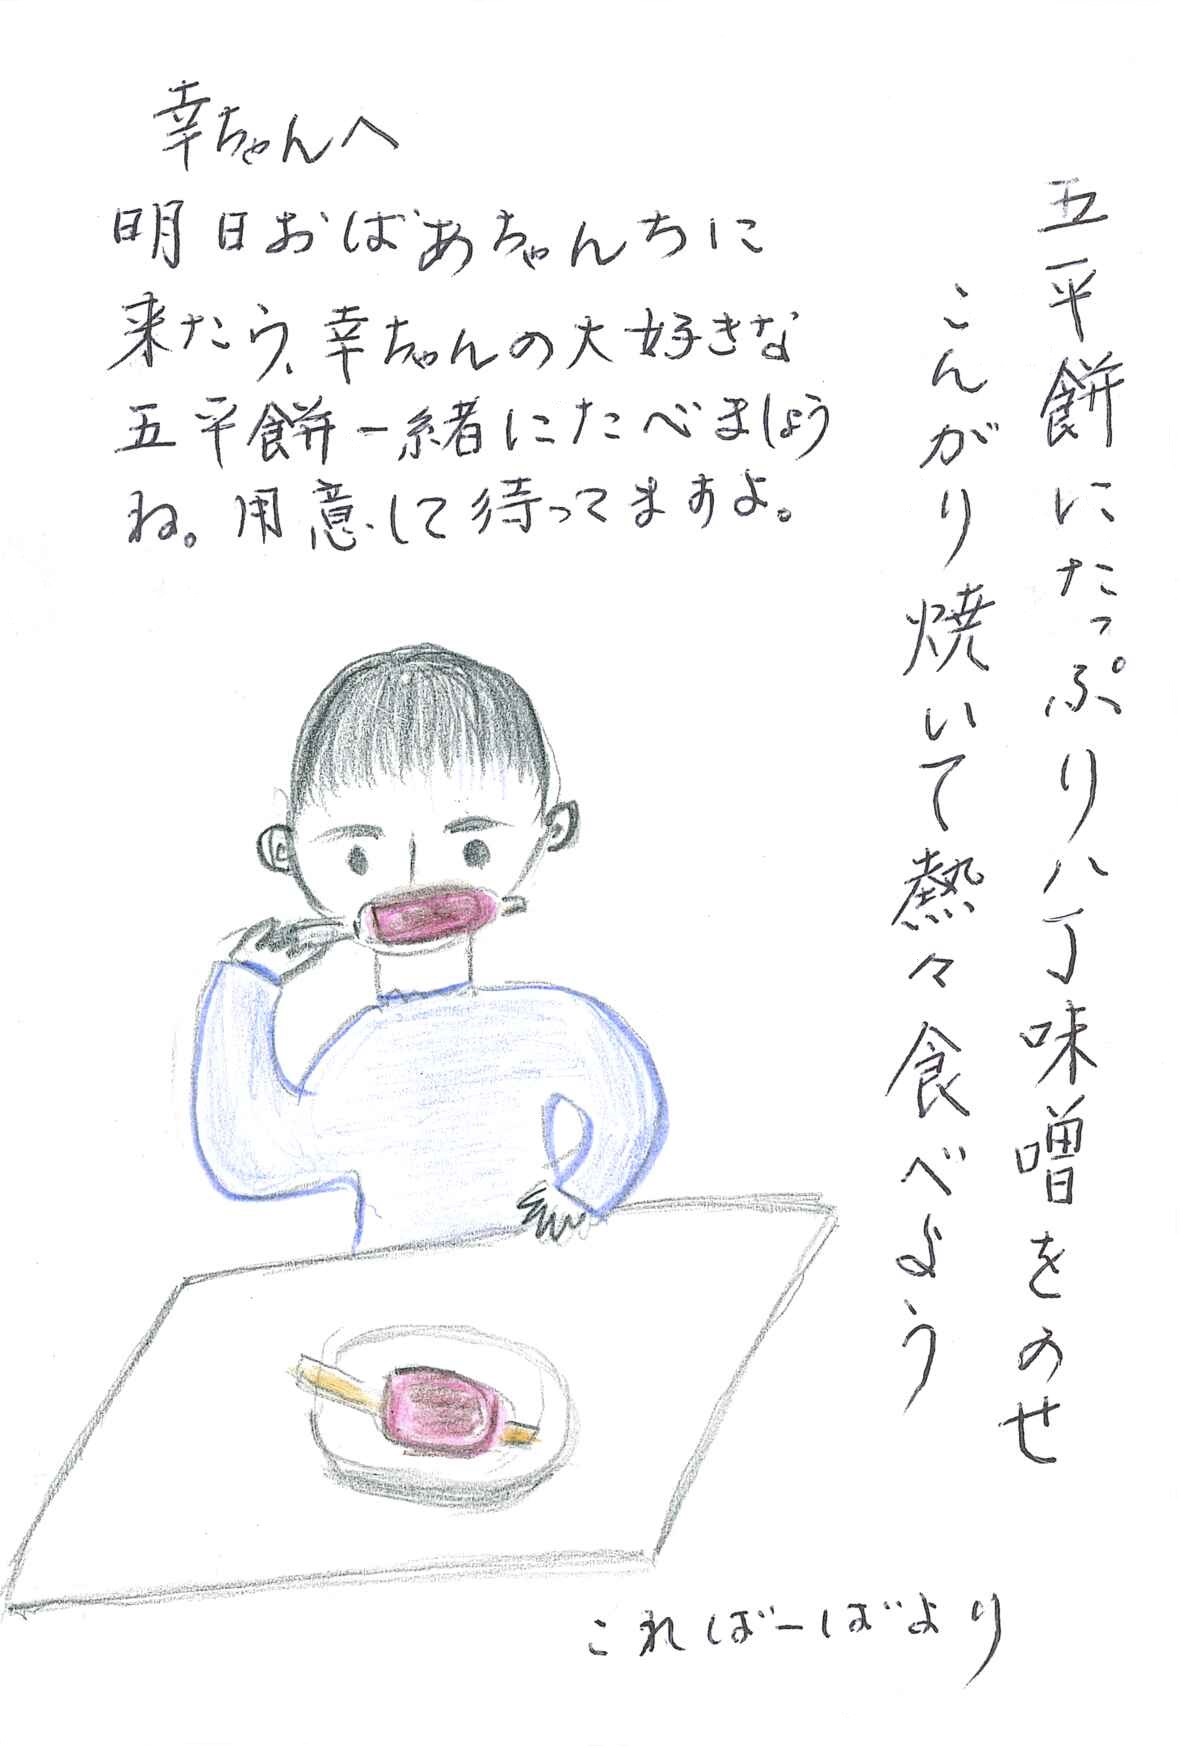 幸ちゃんへ
明日おばあちゃんちに
来たら、幸ちゃんの大好きな
五平餅一緒にたべましょう
ね。用意して待ってますよ。
五平餅にたっぷり八丁味噌をのせ
こんがり焼いて熱々食べよう
こればーばより